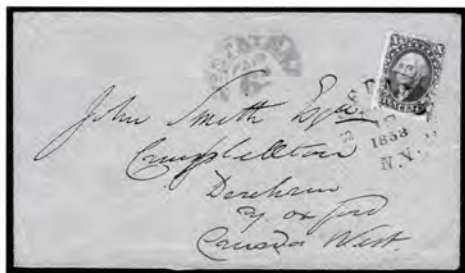 John Smith Esqr
Campbellton
Dereham
Co. Oxford
Canada West.
1858
N.Y.